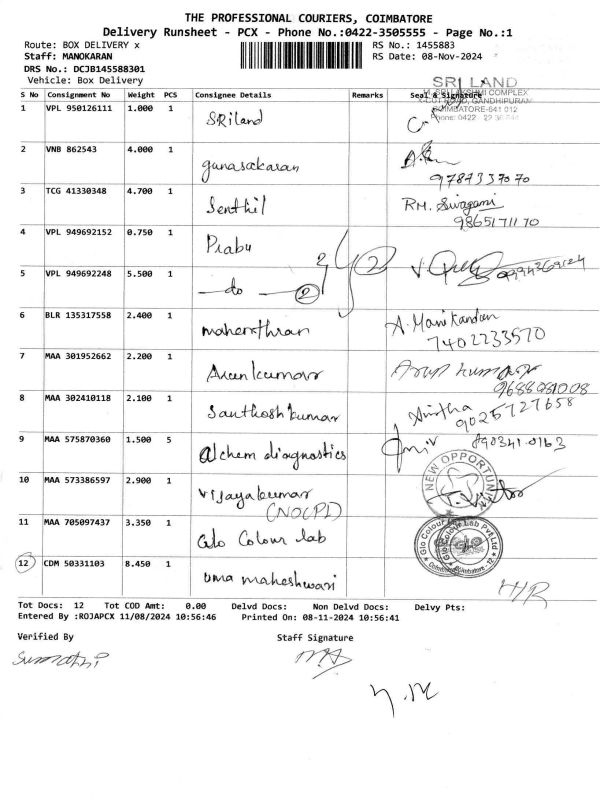 THE PROFESSIONAL COURIERS, COIMBATORE
Delivery Runsheet - PCX - Phone No.:0422-3505555 - Page No.:1
Route: BOX DELIVERY x RS No.: 1455883
Staff: MANOKARAN RS Date: 08-Nov-2024
DRS No.: DCJB145588301
Vehicle: Box Delivery
SRI LAND
S No Consignment No Weight PCS Consignee Details Remarks Seal & Signature
COMPLEX
GANDHIPURAM
COIMBATORE-641 012
Phone: 0422
1 VPL 950126111 1.000 1 SRiland
2 VNB 862543 4.000 1 gunasakaran
9787337070
3 TCG 41330348 4.700 1 Senthil RM. Sivagami
9865171170
4 VPL 949692152 0.750 1 Prabu 2
5 VPL 949692248 5.500 1 do 2
6 BLR 135317558 2.400 1 mahenthran A. Manikandan
7402233570
7 MAA 301952662 2.200 1 Arunkumar Arun kumar
9688981008
8 MAA 302410118 2.100 1 Santhosh kumar
9025727658
9 MAA 575870360 1.500 5 alchem diagnostics
10 MAA 573386597 2.900 1 vijayakumar
(NOCPL)
NEW OPPORTUNI
11 MAA 705097437 3.350 1 Glo Colour lab
Glo Colour Lab Pvt Ltd
Coimbatore - 12
12 CDM 50331103 8.450 1 uma maheshwari
Tot Docs: 12 Tot COD Amt: 0.00 Delvd Docs: Non Delvd Docs: Delvy Pts:
Entered By :ROJAPCX 11/08/2024 10:56:46 Printed On: 08-11-2024 10:56:41
Verified By Staff Signature
Sumathi